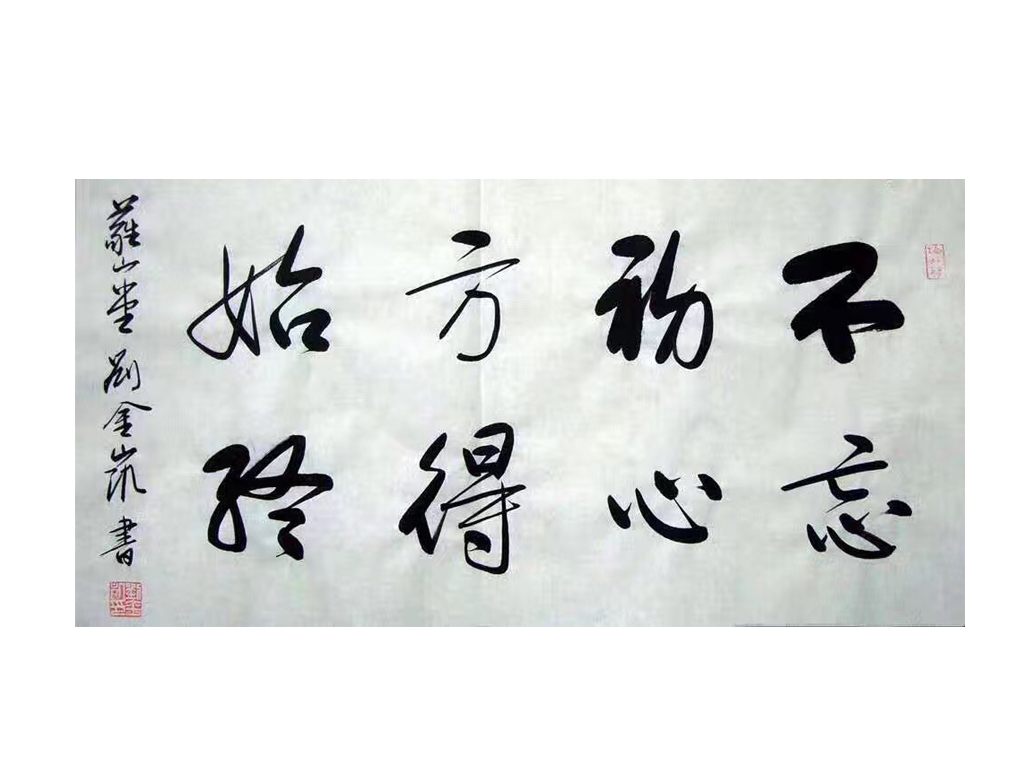 不忘
初心
方得
始終
蘿山堂 劉金嵐 書